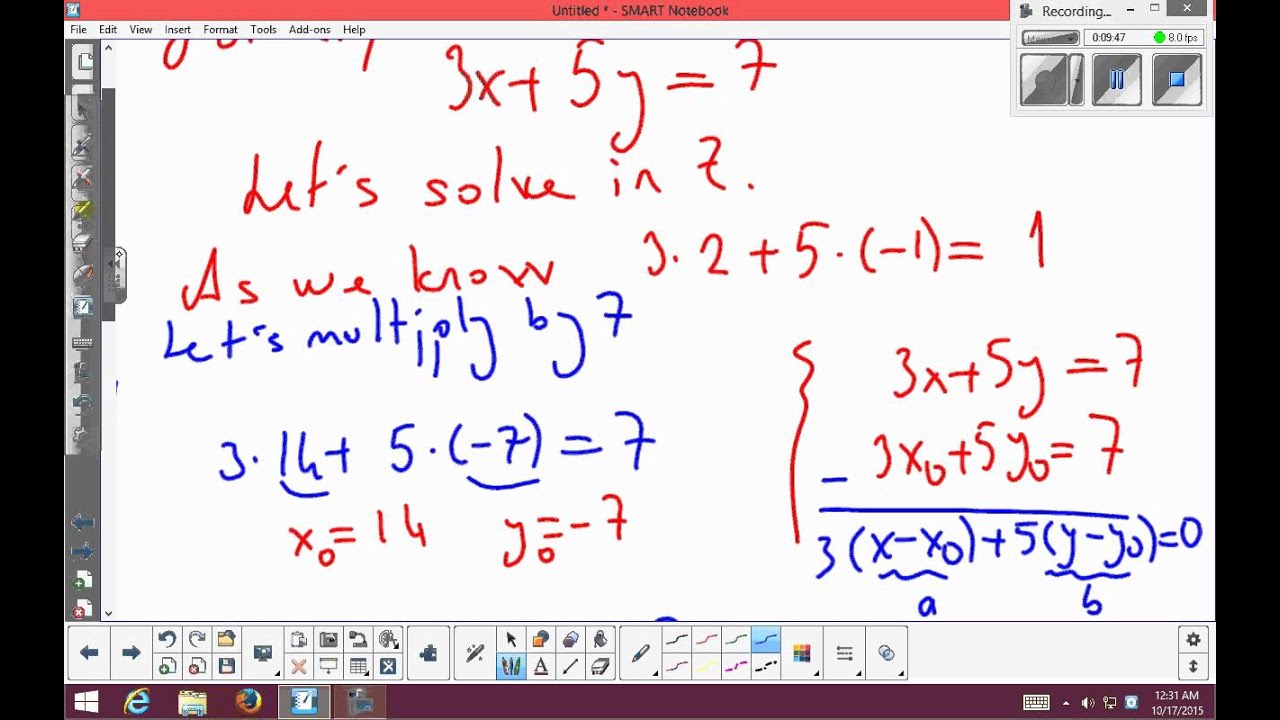 Untitled * - SMART Notebook
File Edit View Insert Format Tools Add-ons Help
Recording...
00:09:47
8.0 fps
3x+5y=7
Let's solve in Z.
As we know 3·2+5·(-1)= 1
Let's multiply by 7
3·14+ 5·(-7)=7
x₀=14 y₀=-7
3x+5y=7
3x₀+5y₀=7
-
3(x-x₀)+5(y-y₀)=0
a b
12:31 AM
10/17/2015